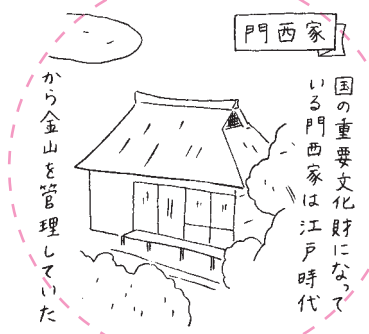 門西家
国の重要文化財になって
いる門西家は江戸時代
から金山を管理していた